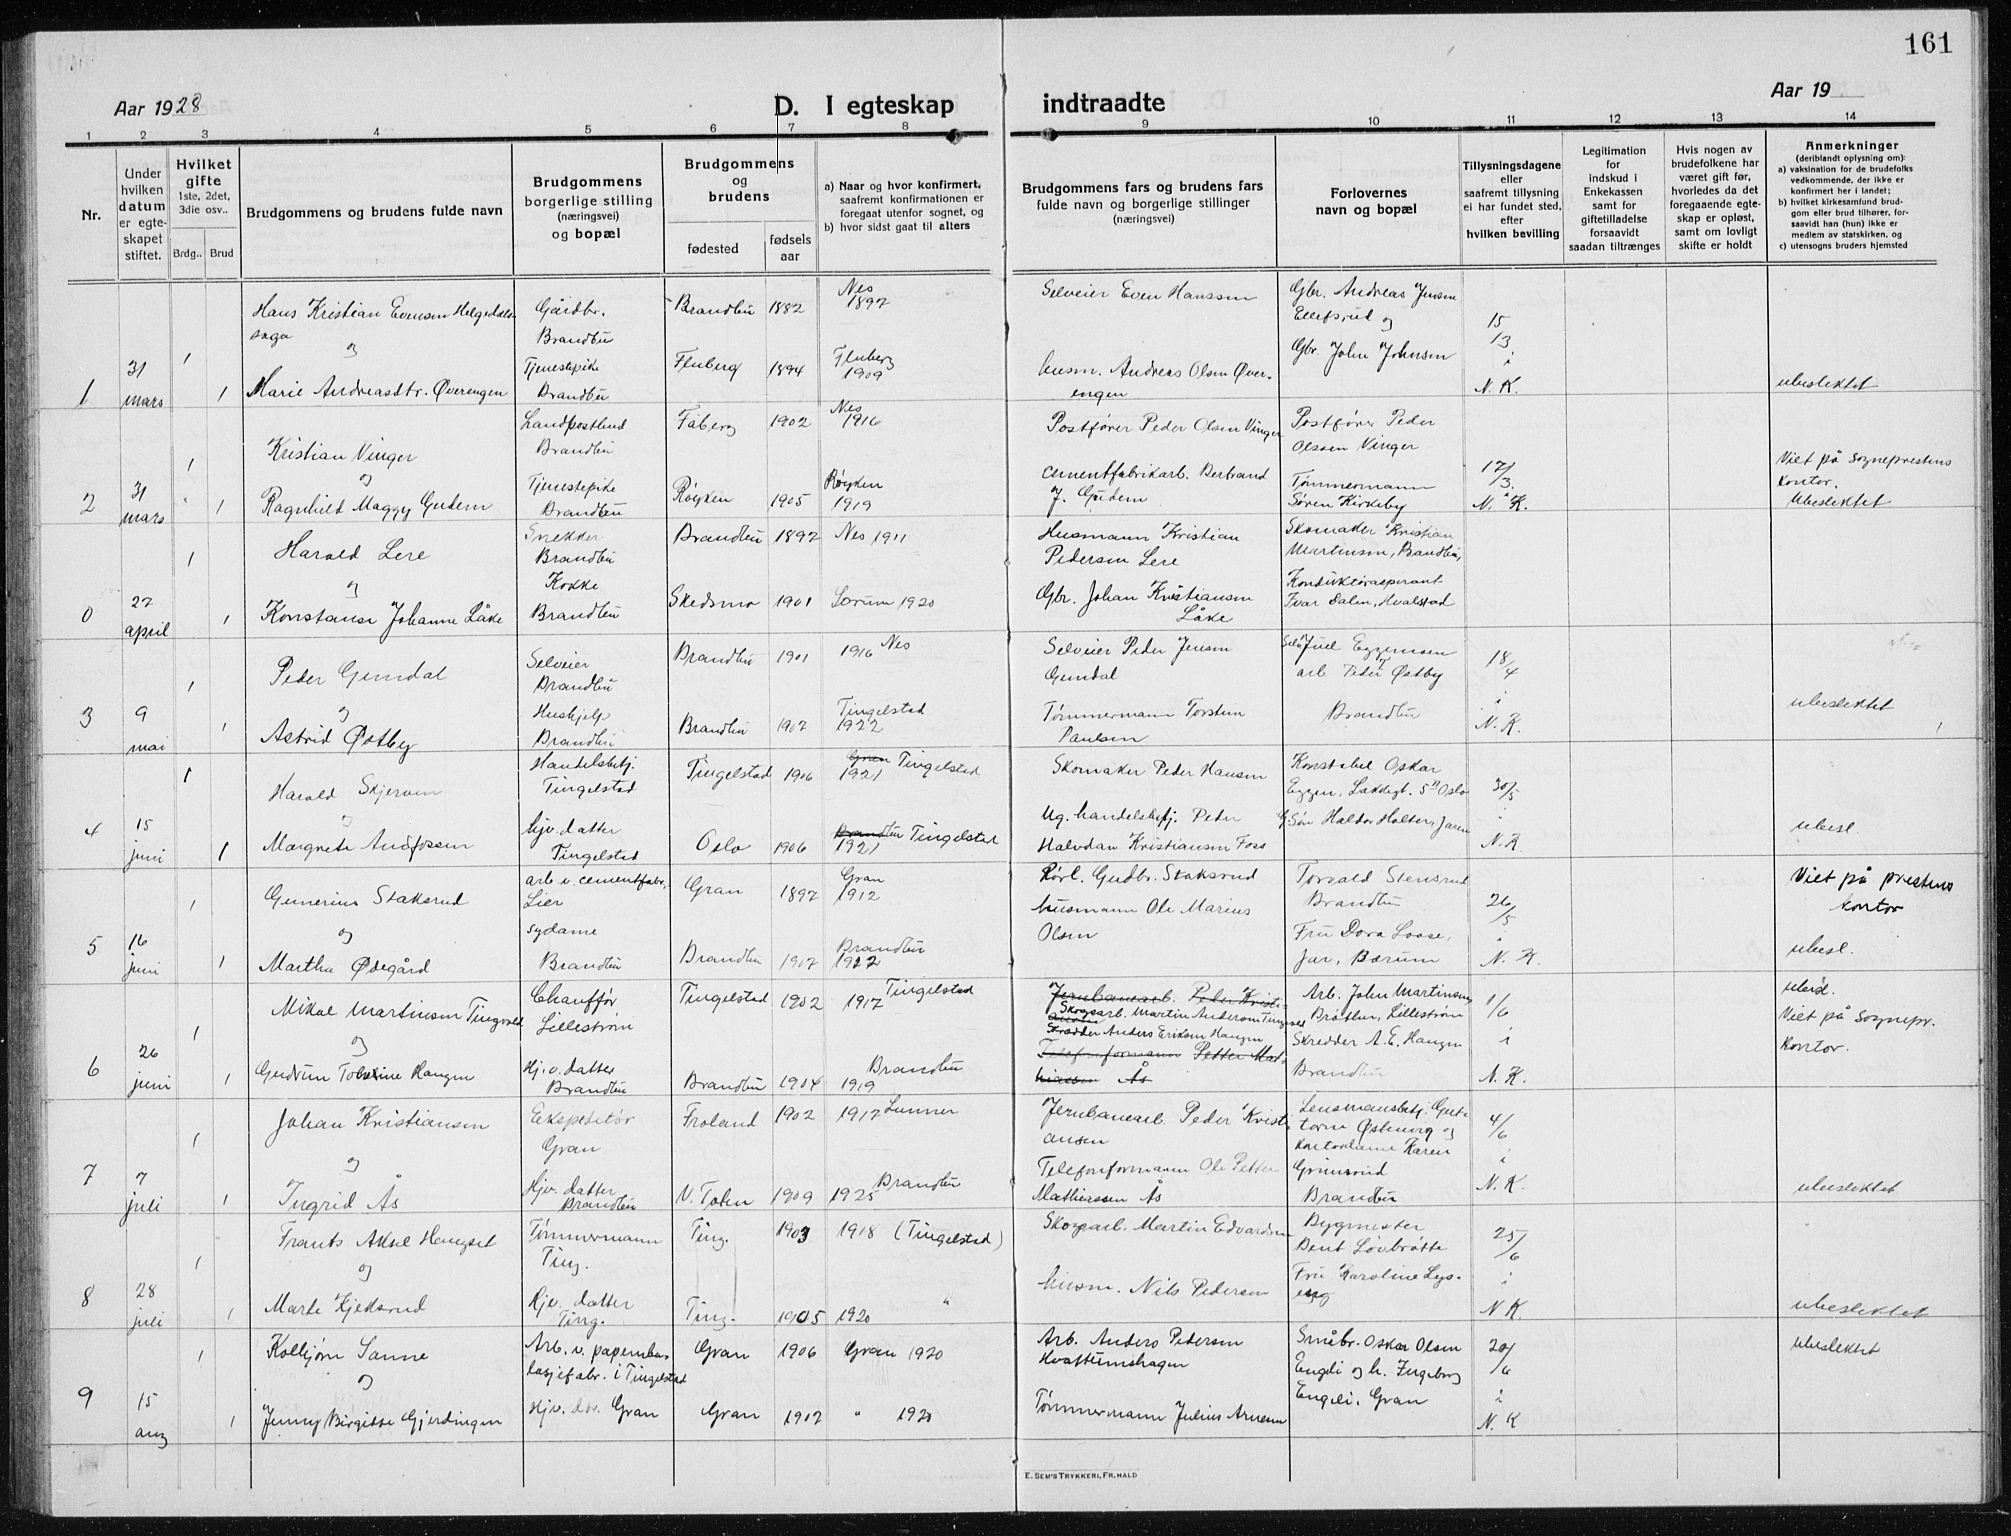 161
Aar 1928
D. I egteskap indtraadte
Aar 19
1 2 3 4 5 6 7 8 9 10 11 12 13 14
Nr.
Under hvilken datum er egteskapet stiftet.
Hvilket gifte
1ste, 2det, 3die osv..
Brdg.. Brud
Brudgommens og brudens fulde navn
Brudgommens borgerlige stilling (næringsvei) og bopæl
Brudgommens og brudens
fødested
fødsels aar
a) Naar og hvor konfirmert, saafremt konfirmationen er foregaat utenfor sognet, og
b) hvor sidst gaat til alters
Brudgommens fars og brudens fars fulde navn og borgerlige stillinger (næringsvei)
Forlovernes navn og bopæl
Tillysningsdagene eller saafremt tillysning ei har fundet sted, efter hvilken bevilling
Legitimation for indskud i Enkekassen samt for giftetilladelse forsaavidt saadan tiltrænges
Hvis nogen av brudefolkene har været gift før, hvorledes da det foregaaende egteskap er opløst, samt om lovligt skifte er holdt
Anmerkninger
(deriblandt oplysning om):
a) vaksination for de brudefolks vedkommende, der ikke er konfirmert her i landet;
b) hvilket kirkesamfund brudgom eller brud tilhører, forsaavidt han (hun) ikke er medlem av statskirken, og
c) utensogns bruders hjemsted
1 31 mars 1 1
Hans Kristian Evensen Helgedalssaga Gårdbr. Brandbu Brandbu 1882 Nes 1897 Selveier Even Hanssen
og
Marie Andreasdtr. Øverengen Tjenestepike Brandbu Fluberg 1894 Fluberg 1909 husm. Andreas Olsen Øverengen
Gbr. Andreas Jensen Ellefsrud og Gbr. John Johnsen
15 13 i N. K.
ubeslektet
2 31 mars 1 1
Kristian Vinger Landpostbud Brandbu Fåberg 1902 Nes 1916 Postfører Peder Olsen Vinger
og
Ragnhild Maggy Gudem Tjenestepike Brandbu Røyken 1905 Røyken 1919 Cementfabrikarb. Bertrand J. Gudem
Postfører Peder Olsen Vinger
Tømmermann Søren Kirkeby
17/3. i N. K.
Viet på sogneprestens kontor.
Ubeslektet
0 27 april 1 1
Harald Lere Snekker Brandbu Brandbu 1897 Nes 1911 Husmann Kristian Pedersen Lere
og
Konstanse Johanne Låke Kokke Brandbu Skedsmo 1901 Sørum 1920 Gbr. Johan Kristiansen Låke
Skomaker Kristian Martinsen, Brandbu,
Konduktøraspirant Ivar Dalen, Hvalstad
3 9 mai 1 1
Peder Gumdal Selveier Brandbu Brandbu 1901 1916 Nes Selveier Peder Jensen Gumdal
og
Astrid Østby Hushjelp Brandbu Brandbu 1907 Tingelstad 1922 Tømmermann Torstein Paulsen
Juel Eggensen
arb. Peder Østby
Brandbu
18/4 i N. K.
ubeslektet
4 15 juni 1 1
Harald Skjerven Handelsbetj. Tingelstad Tingelstad 1906 Gran Tingelstad 1921 Skomaker Peder Hansen
og
Margrete Andfossen Hjv. datter Tingelstad Oslo 1906 Brandbu Tingelstad 1921 Ug. handelsbetj. Peder Halvdan Kristiansen Foss
Konstabel Oskar Eggen, Lakkegt. 5 II Oslo
Haldor Holter, Jaren
30/5 i N. K.
ubesl.
5 16 juni 1 1
Gunerius Staksrud arb. v. cementfabr, Lier Gran 1897 Gran 1912 Rørl. Gudbr. Staksrud
og
Martha Ødegård Sydame Brandbu Brandbu 1907 Brandbu 1922 husmann Ole Marius Olsen
Torvald Stensrud Brandbu
Fru Dora Loose, Jar, Bærum
26/5 i N. K.
Viet på prestens kontor
ubesl.
6 26 juni 1 1
Mikal Martinsen Tingvold Chauffør Lillestrøm Tingelstad 1902 1917 Tingelstad Jernbanearb. Peder Kristiansen
Skogsarb. Martin Andersen Tingvold
og Skredder Anders Eriksen Haugen
Gudrun Tobine Haugen Hj. v. datter Brandbu Brandbu 1904 1919 Brandbu Telefonformann Petter Mathiassen Ås
Arb. John Martinsen Bråthen, Lillestrøm
Skredder A. E. Haugen
Brandbu
1/6 i N. K.
ubesl.
Viet på sognepr. kontor.
7 7 juli 1 1
Johan Kristiansen Ekspeditør Gran Froland 1902 1917 Lunner Jernbanearb. Peder Kristiansen
og
Ingrid Ås Hjv. datter Brandbu V. Toten 1909 1925 Brandbu Telefonformann Ole Petter Mathiassen Ås
Lensmansbetj. Østenvig og
kontordame Karen Grinsrud
Brandbu
4/6 i N. K.
ubeslektet
8 28 juli 1 1
Frants Aksel Hengset Tømmermann Ting. Ting. 1903 1918 (Tingelstad) Skogsarb. Martin Edvardsen
og
Marte Kjeksrud Hjv. datter Ting. Ting. 1905 1920 " husm. Nils Pedersen
Bygmester Bent Løvbråtte
Fru Karoline Lyseng
25/6 i N. K.
ubeslektet
9 15 aug 1 1
Kolbjørn Sanne Arb. v. papemballasjefabr. i Tingelstad Gran 1906 Gran 1920 Arb. Anders Pedersen Hvattumshagen
og
Jenny Birgitte Gjerdingen Hjv. dtr. Gran Gran 1907 " 1920 Tømmermann Julius Arnesen
Småbr. Oskar Olsen Engeli og h. Ingeborg Engeli, Gran
20/6 i N. K
ubeslektet
E. SEM'S TRYKKERI, FR.HALD